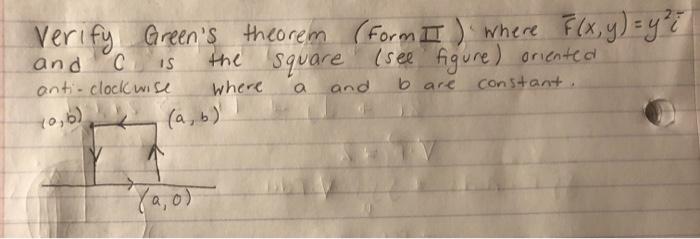 Verify Green's theorem (Form II) where F̄(x,y) = y²ī
and C is the square (see figure) oriented
anti-clockwise where a and b are constant.
(0,b) (a,b)
(a,0)